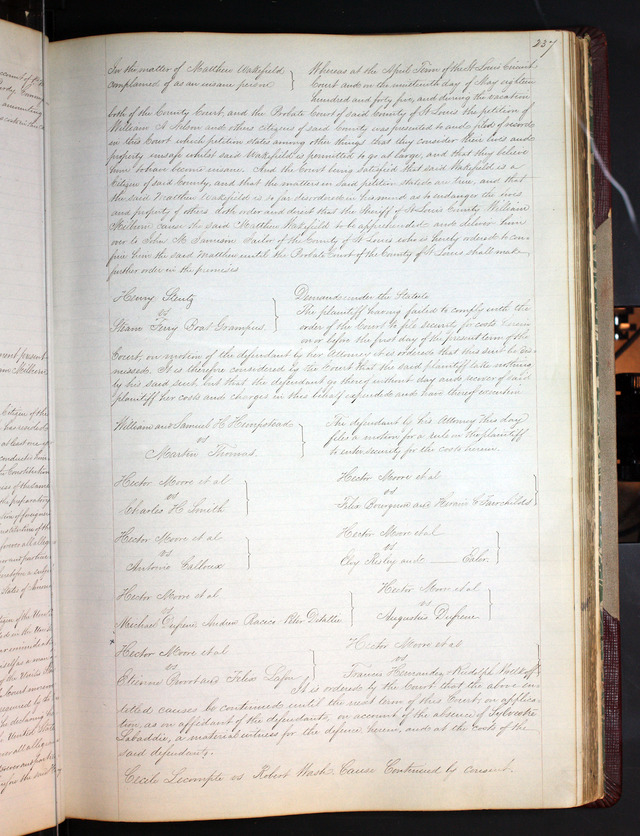 237
In the matter of Matthew Wakefield
complained of as an insane person
Whereas at the April Term of the St Louis Circuit
Court and on the nineteenth day of May eighteen
hundred and forty five, and during the vacation
both of the County Court, and the Probate Court of said County of St Louis the petition of
William A Nelson and others citizens of said County was presented to and filed of record
in this Court which petition states among other things that they consider their lives and
property unsafe whilst said Wakefield is permitted to go at large, and that they believe
him to have become insane. And the Court being satisfied that said Wakefield is a
Citizen of said County, and that the matters in said petition stated are true, and that
the said Matthew Wakefield is so far disordered in his mind as to endanger the lives
and property of others doth order and direct that the Sheriff of St Louis County William
Milburn cause the said Matthew Wakefield to be apprehended and deliver him
over to John M. Jamison Jailor of the County of St Louis who is hereby ordered to con-
fine him the said Matthew until the Probate Court of the County of St Louis shall make
further order in the premises
Henry
vs
Steam Ferry Boat Grampus
Demand under the Statute
The plaintiff having failed to comply with the
order of the Court to file security for costs herein
on or before the first day of the present term of the
Court, on motion of the defendant by her Attorney it is ordered that this suit be dis-
missed. It is therefore considered by the Court that the said plaintiff take nothing
by his said suit, but that the defendant go thereof without day and recover of said
plaintiff her costs and charges in this behalf expended and have thereof execution
William and Samuel H Hempstead
vs
Martin Thomas
The defendant by his Attorney this day
files a motion for a rule on the plaintiff
to enter security for the costs herein.
Hector Moore et al
vs
Charles H Smith
Hector Moore et al
vs
Felix and Fairchilds
Hector Moore et al
vs
Antoine
Hector Moore et al
vs
Risley and Ealer
Hector Moore et al
vs
Michael Dufrene, Andrew Peter
Hector Moore et al
vs
Augustus Dufrene
Hector Moore et al
vs
Etienne Provot and Felix
Hector Moore et al
vs
Francis Hernandez, Rudolph
It is ordered by the Court that the above en-
titled causes be continued until the next term of this Court, on applica-
tion, as on affidavit of the defendants, on account of the absence of Sylvestre
Labaddie, a material witness for the defense herein, and at the costs of the
said defendants.
Cecile Lecompte vs Robert Wash. Cause Continued by consent.